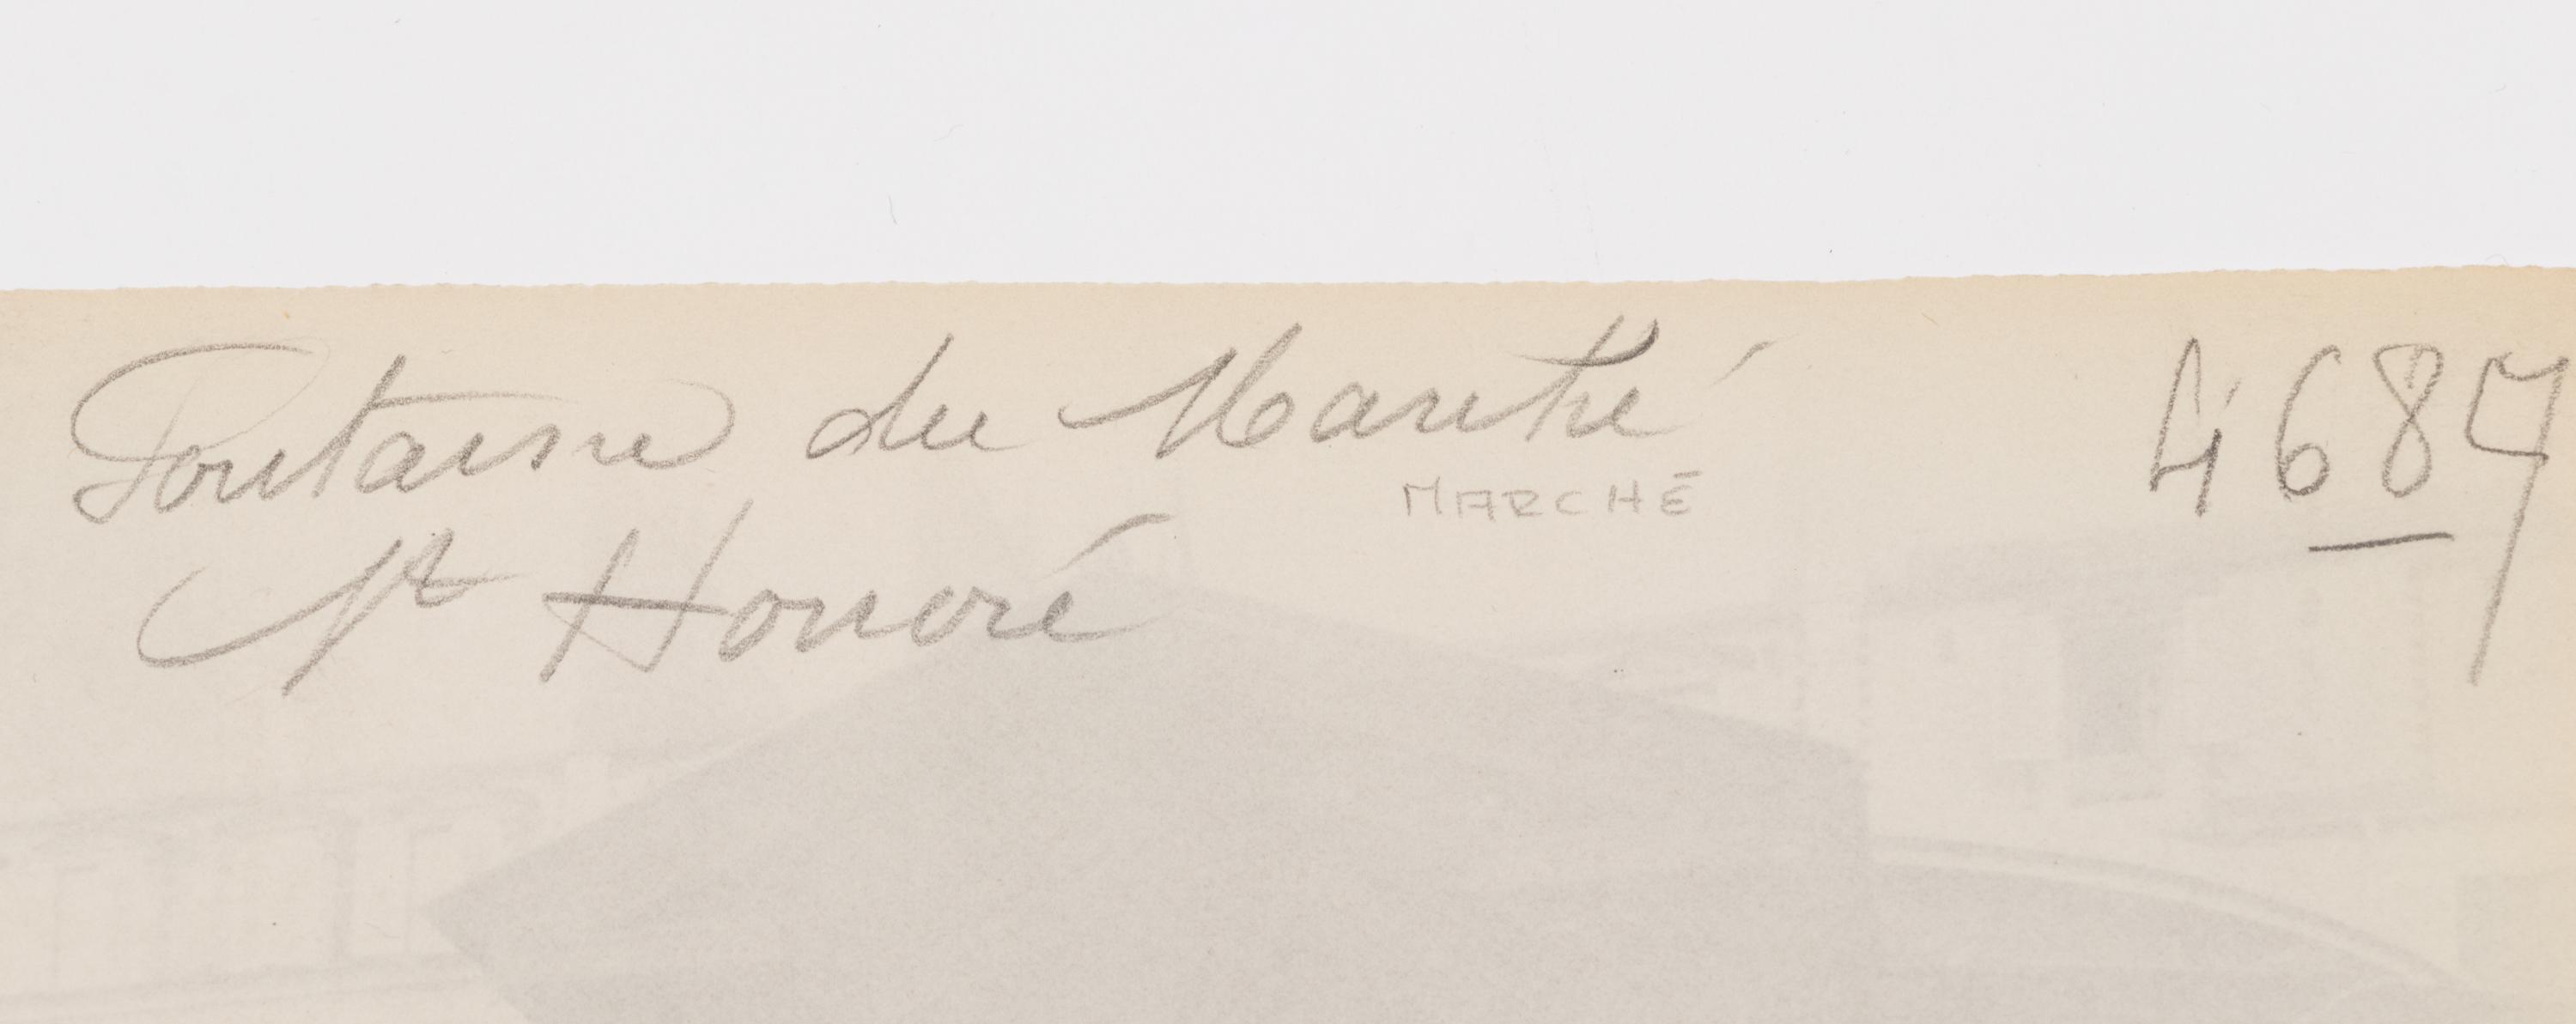 Fontaine du Marché 4687
MARCHÉ
St Honoré